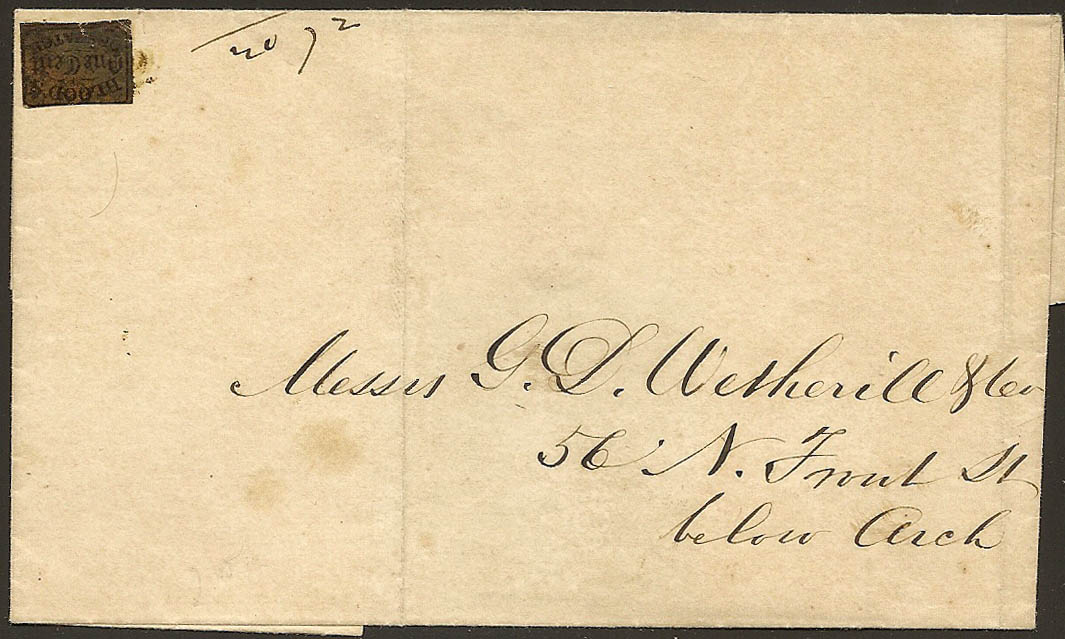 BLOOD'S
One Cent
72
Messrs G. D. Wetherill & Co
56 N. Front St
below Arch